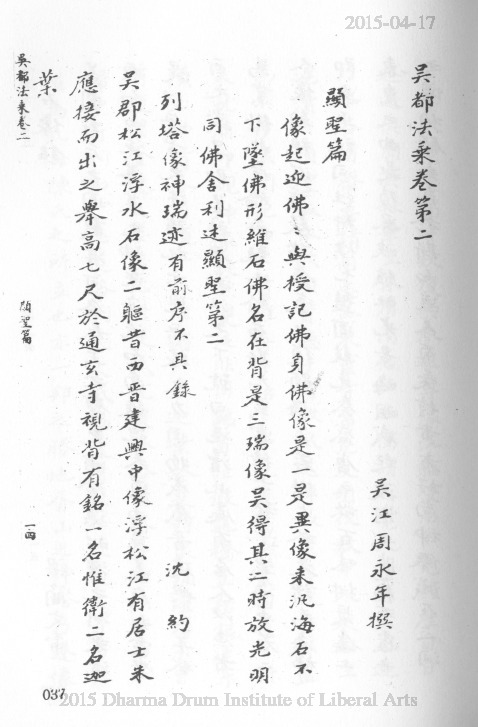 2015-04-17
吴都法乘卷第二
吴江周永年撰
顯聖篇
像起迎佛〻與授記佛身佛像是一是異像來汎海石不
下墜佛形維石佛名在背是三瑞像吴得其二時放光明
同佛舍利述顯聖第二
列塔像神瑞迹有前序不具錄
沈約
吴郡松江浮水石像二軀昔西晋建興中像浮松江有居士朱
應接而出之舉高七尺於通玄寺視背有銘一名惟衛二名迦
葉
吴都法乘卷二
顯聖篇
一四
037
2015 Dharma Drum Institute of Liberal Arts